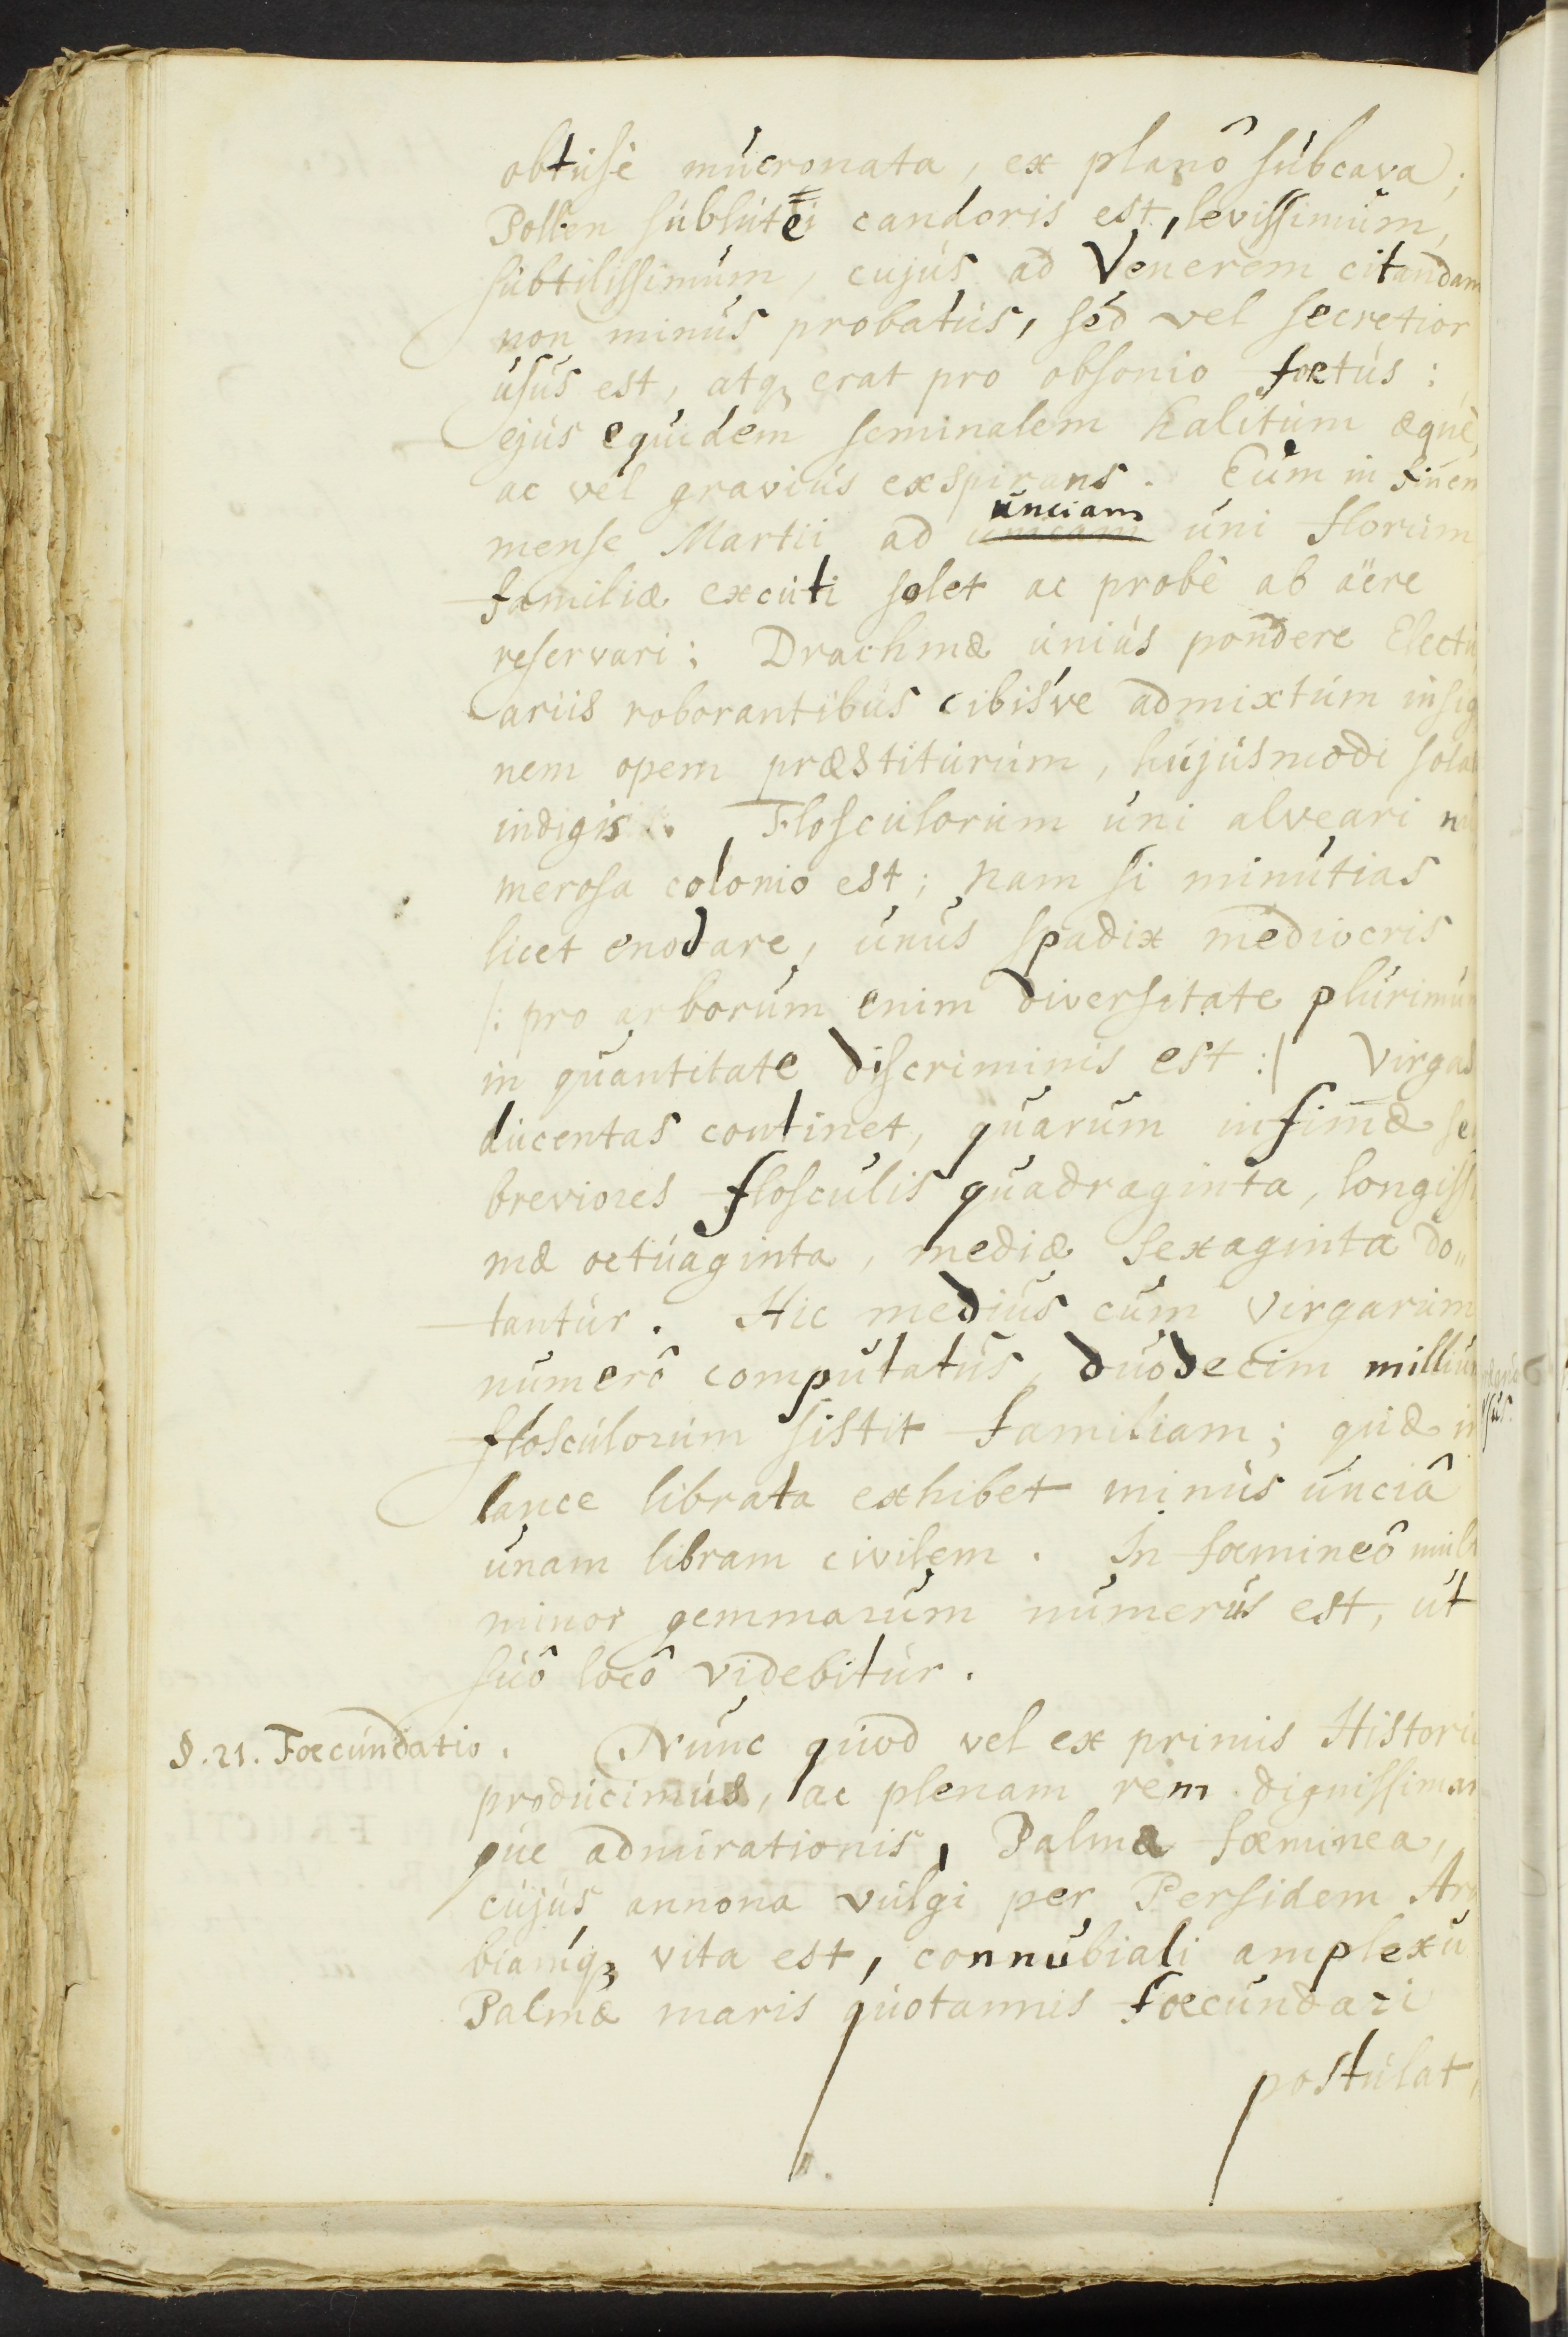 obtusè mucronata, ex planô subcava;
Pollen sublutei candoris est, levissimum,
subtilissimum, cujus ad Venerem citandam
non minus probatus, sed vel secretior
usus est, atq; erat pro obsonio foetus:
ejus equidem seminalem halitum æquè,
ac vel gravius exspirans. Eum in finem
unciam
mense Martii ad unicam uni florum
familiæ excuti solet ac probè ab aëre
reservari: Drachmæ unius pondere Electu
ariis roborantibus cibisve admixtum insig
nem opem præstiturum, hujusmodi
indigis. Flosculorum uni alveari
merosa colonio est; nam si minutias
licet enodare, unus spadix mediocris
/: pro arborum enim diversitate plurimum
in quantitate discriminis est :/ Virgas
ducentas continet, quarum infimæ
breviores flosculis quadraginta, longissi
mæ octuaginta, mediæ sexaginta do„
tantur. Hic medius cum virgarum
numerô computatus, duodecim millium
flosculorum sistit familiam; quæ in
lance librata exhibet minus unciâ
unam libram civilem. In foemineô
minor gemmarum numerus est, ut
suô locô videbitur.
§. 21. Foecundatio. Nunc quod vel ex primis
producimus, ac plenam rem dignissimam
que admirationis, Palma foeminea,
cujus annona vulgi per Persidem Ara
biamq; vita est, connubiali amplexu
Palmæ maris quotannis foecundari
postulat,